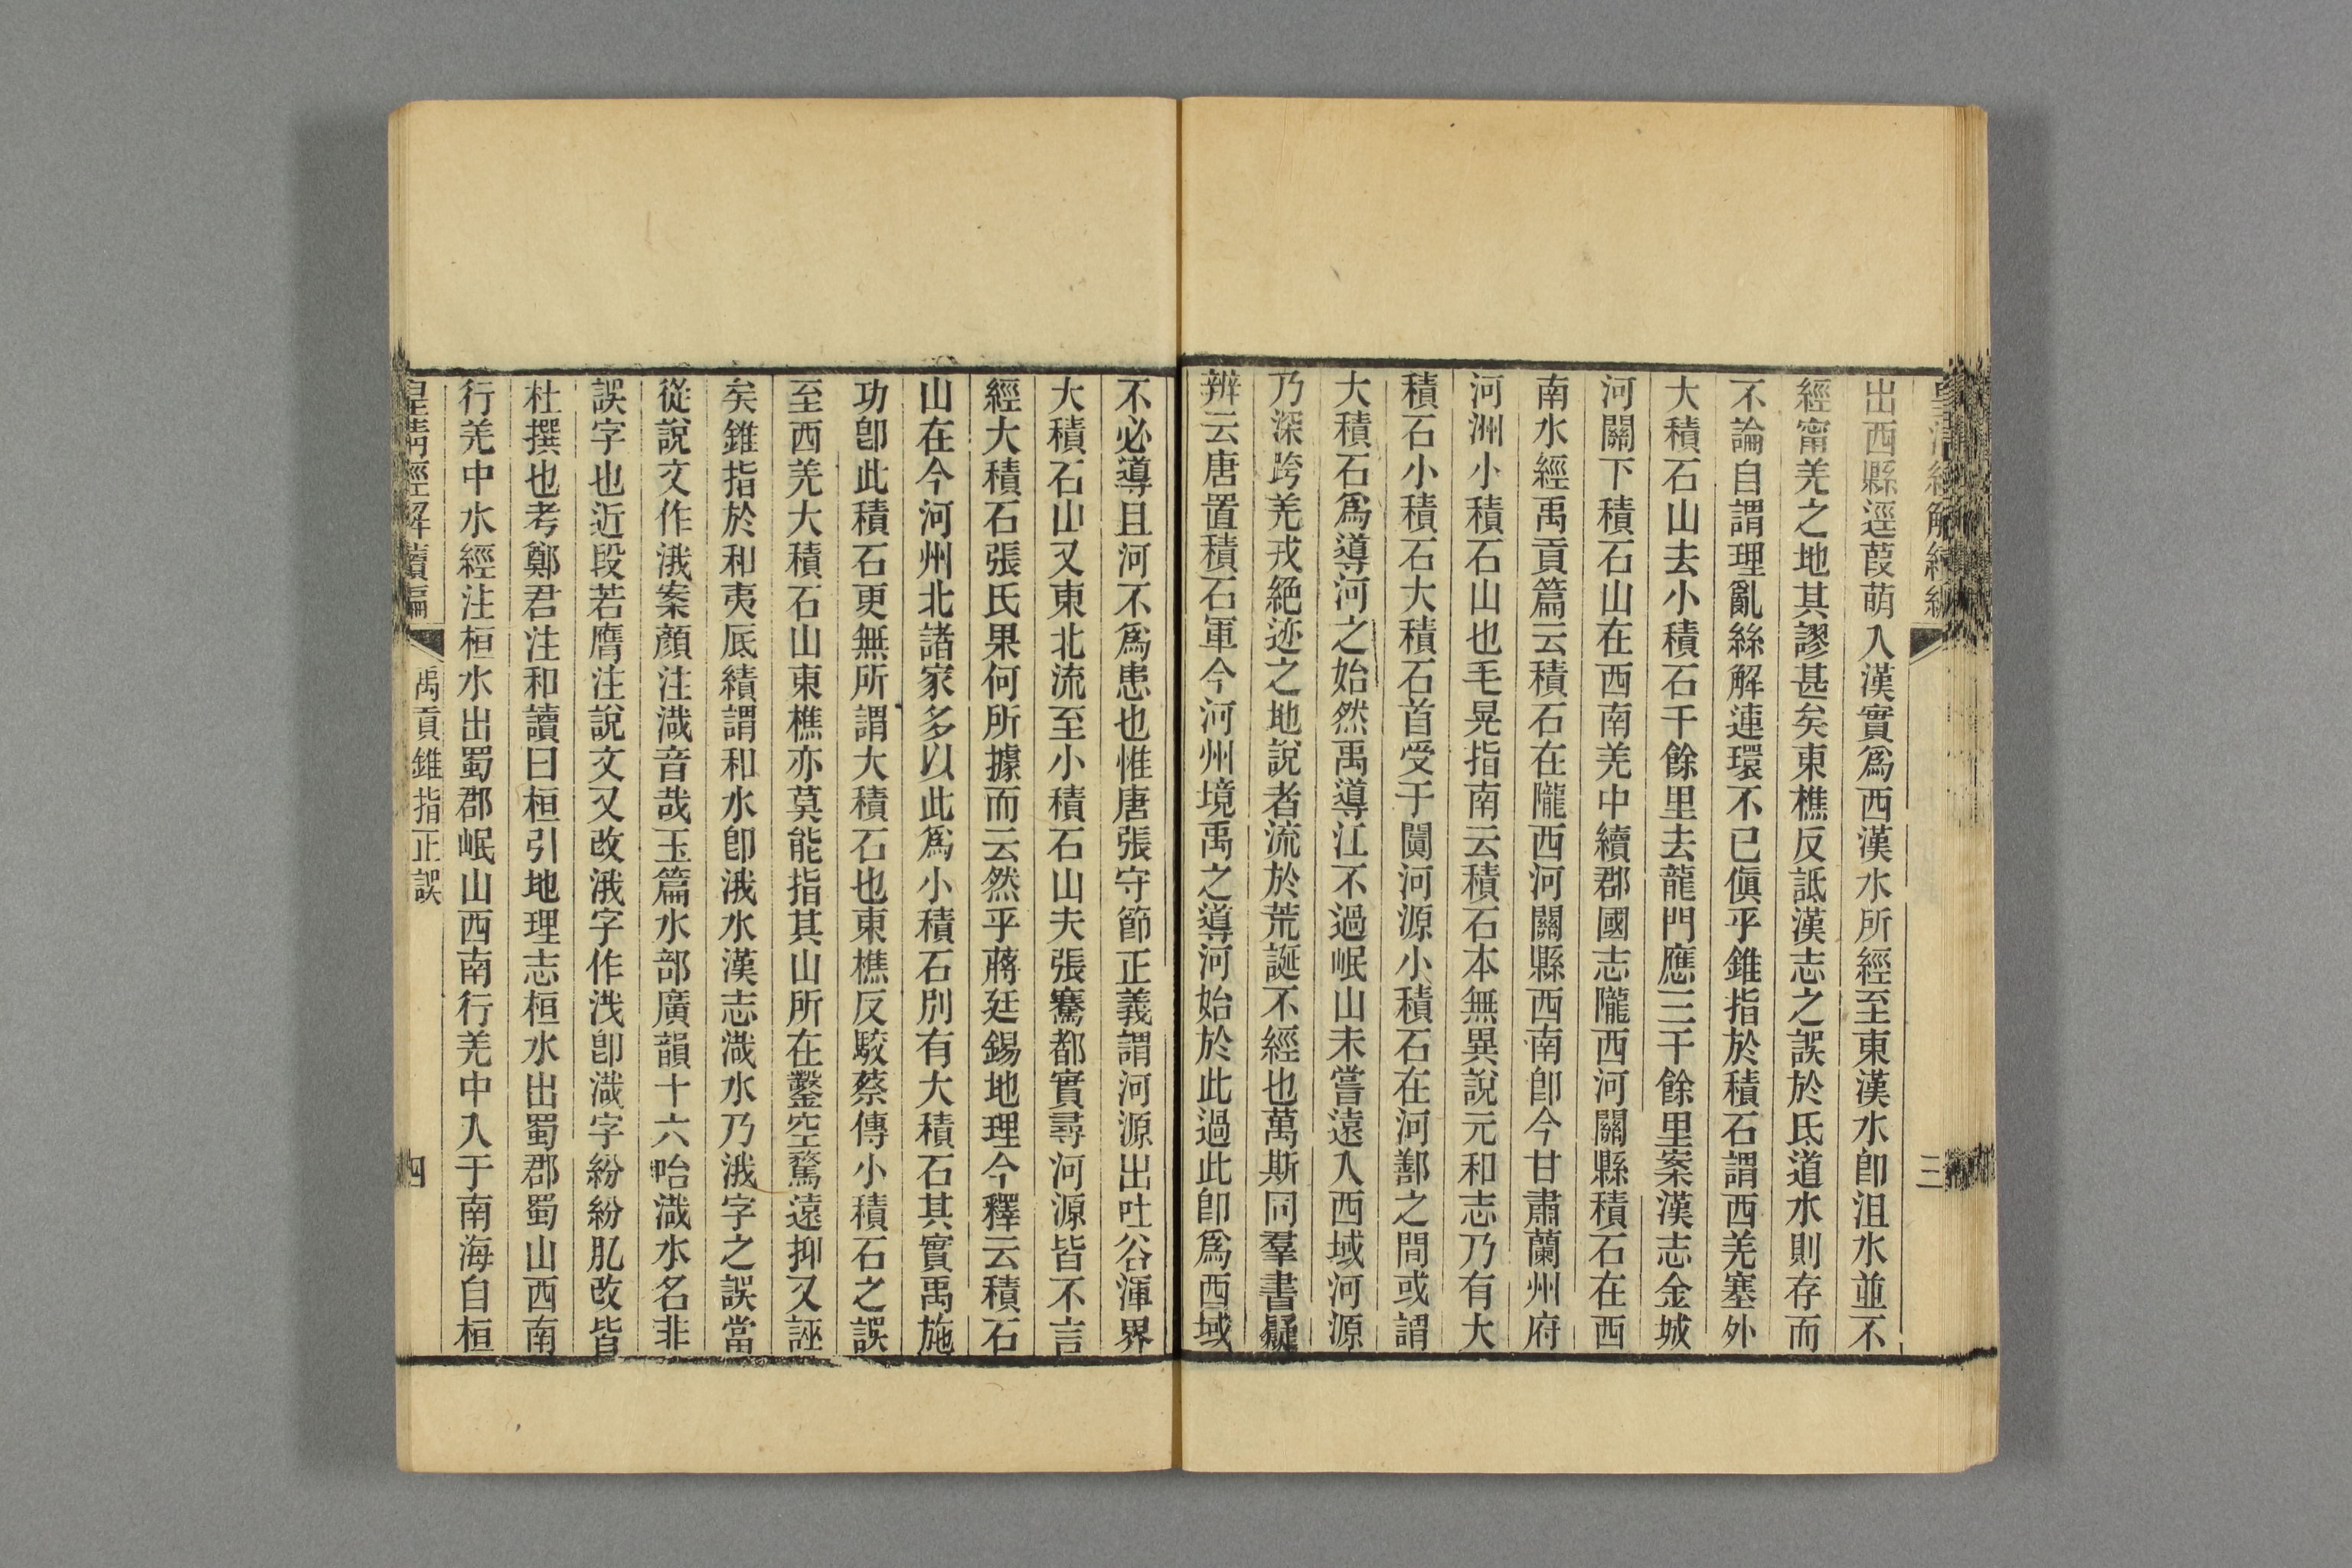 皇清經解續編
三
出西縣逕葭萌入漢實爲西漢水所經至東漢水卽沮水並不
經甯羌之地其謬甚矣東樵反詆漢志之誤於氐道水則存而
不論自謂理亂絲解連環不已傎乎錐指於積石謂西羌塞外
大積石山去小積石千餘里去龍門應三千餘里案漢志金城
河關下積石山在西南羌中續郡國志隴西河關縣積石在西
南水經禹貢篇云積石在隴西河關縣西南卽今甘肅蘭州府
河洲小積石山也毛晃指南云積石本無異說元和志乃有大
積石小積石大積石首受于闐河源小積石在河鄯之閒或謂
大積石爲導河之始然禹導江不過岷山未嘗遠入西域河源
乃深跨羌戎絕迹之地說者流於荒誕不經也萬斯同羣書疑
辨云唐置積石軍今河州境禹之導河始於此過此卽爲西域
不必導且河不爲患也惟唐張守節正義謂河源出吐谷渾界
大積石山又東北流至小積石山夫張騫都實尋河源皆不言
經大積石張氏果何所據而云然乎蔣廷錫地理今釋云積石
山在今河州北諸家多以此爲小積石別有大積石其實禹施
功卽此積石更無所謂大積石也東樵反駮蔡傳小積石之誤
至西羌大積石山東樵亦莫能指其山所在鑿空騖遠抑又誣
矣錐指於和夷厎績謂和水卽涐水漢志渽水乃涐字之誤當
從說文作涐案顏注渽音哉玉篇水部廣韻十六咍渽水名非
誤字也近段若膺注說文又改涐字作渽卽渽字紛紛肊改皆
杜撰也考鄭君注和讀曰桓引地理志桓水出蜀郡蜀山西南
行羌中水經注桓水出蜀郡岷山西南行羌中入于南海自桓
皇清經解續編
禹貢錐指正誤
四